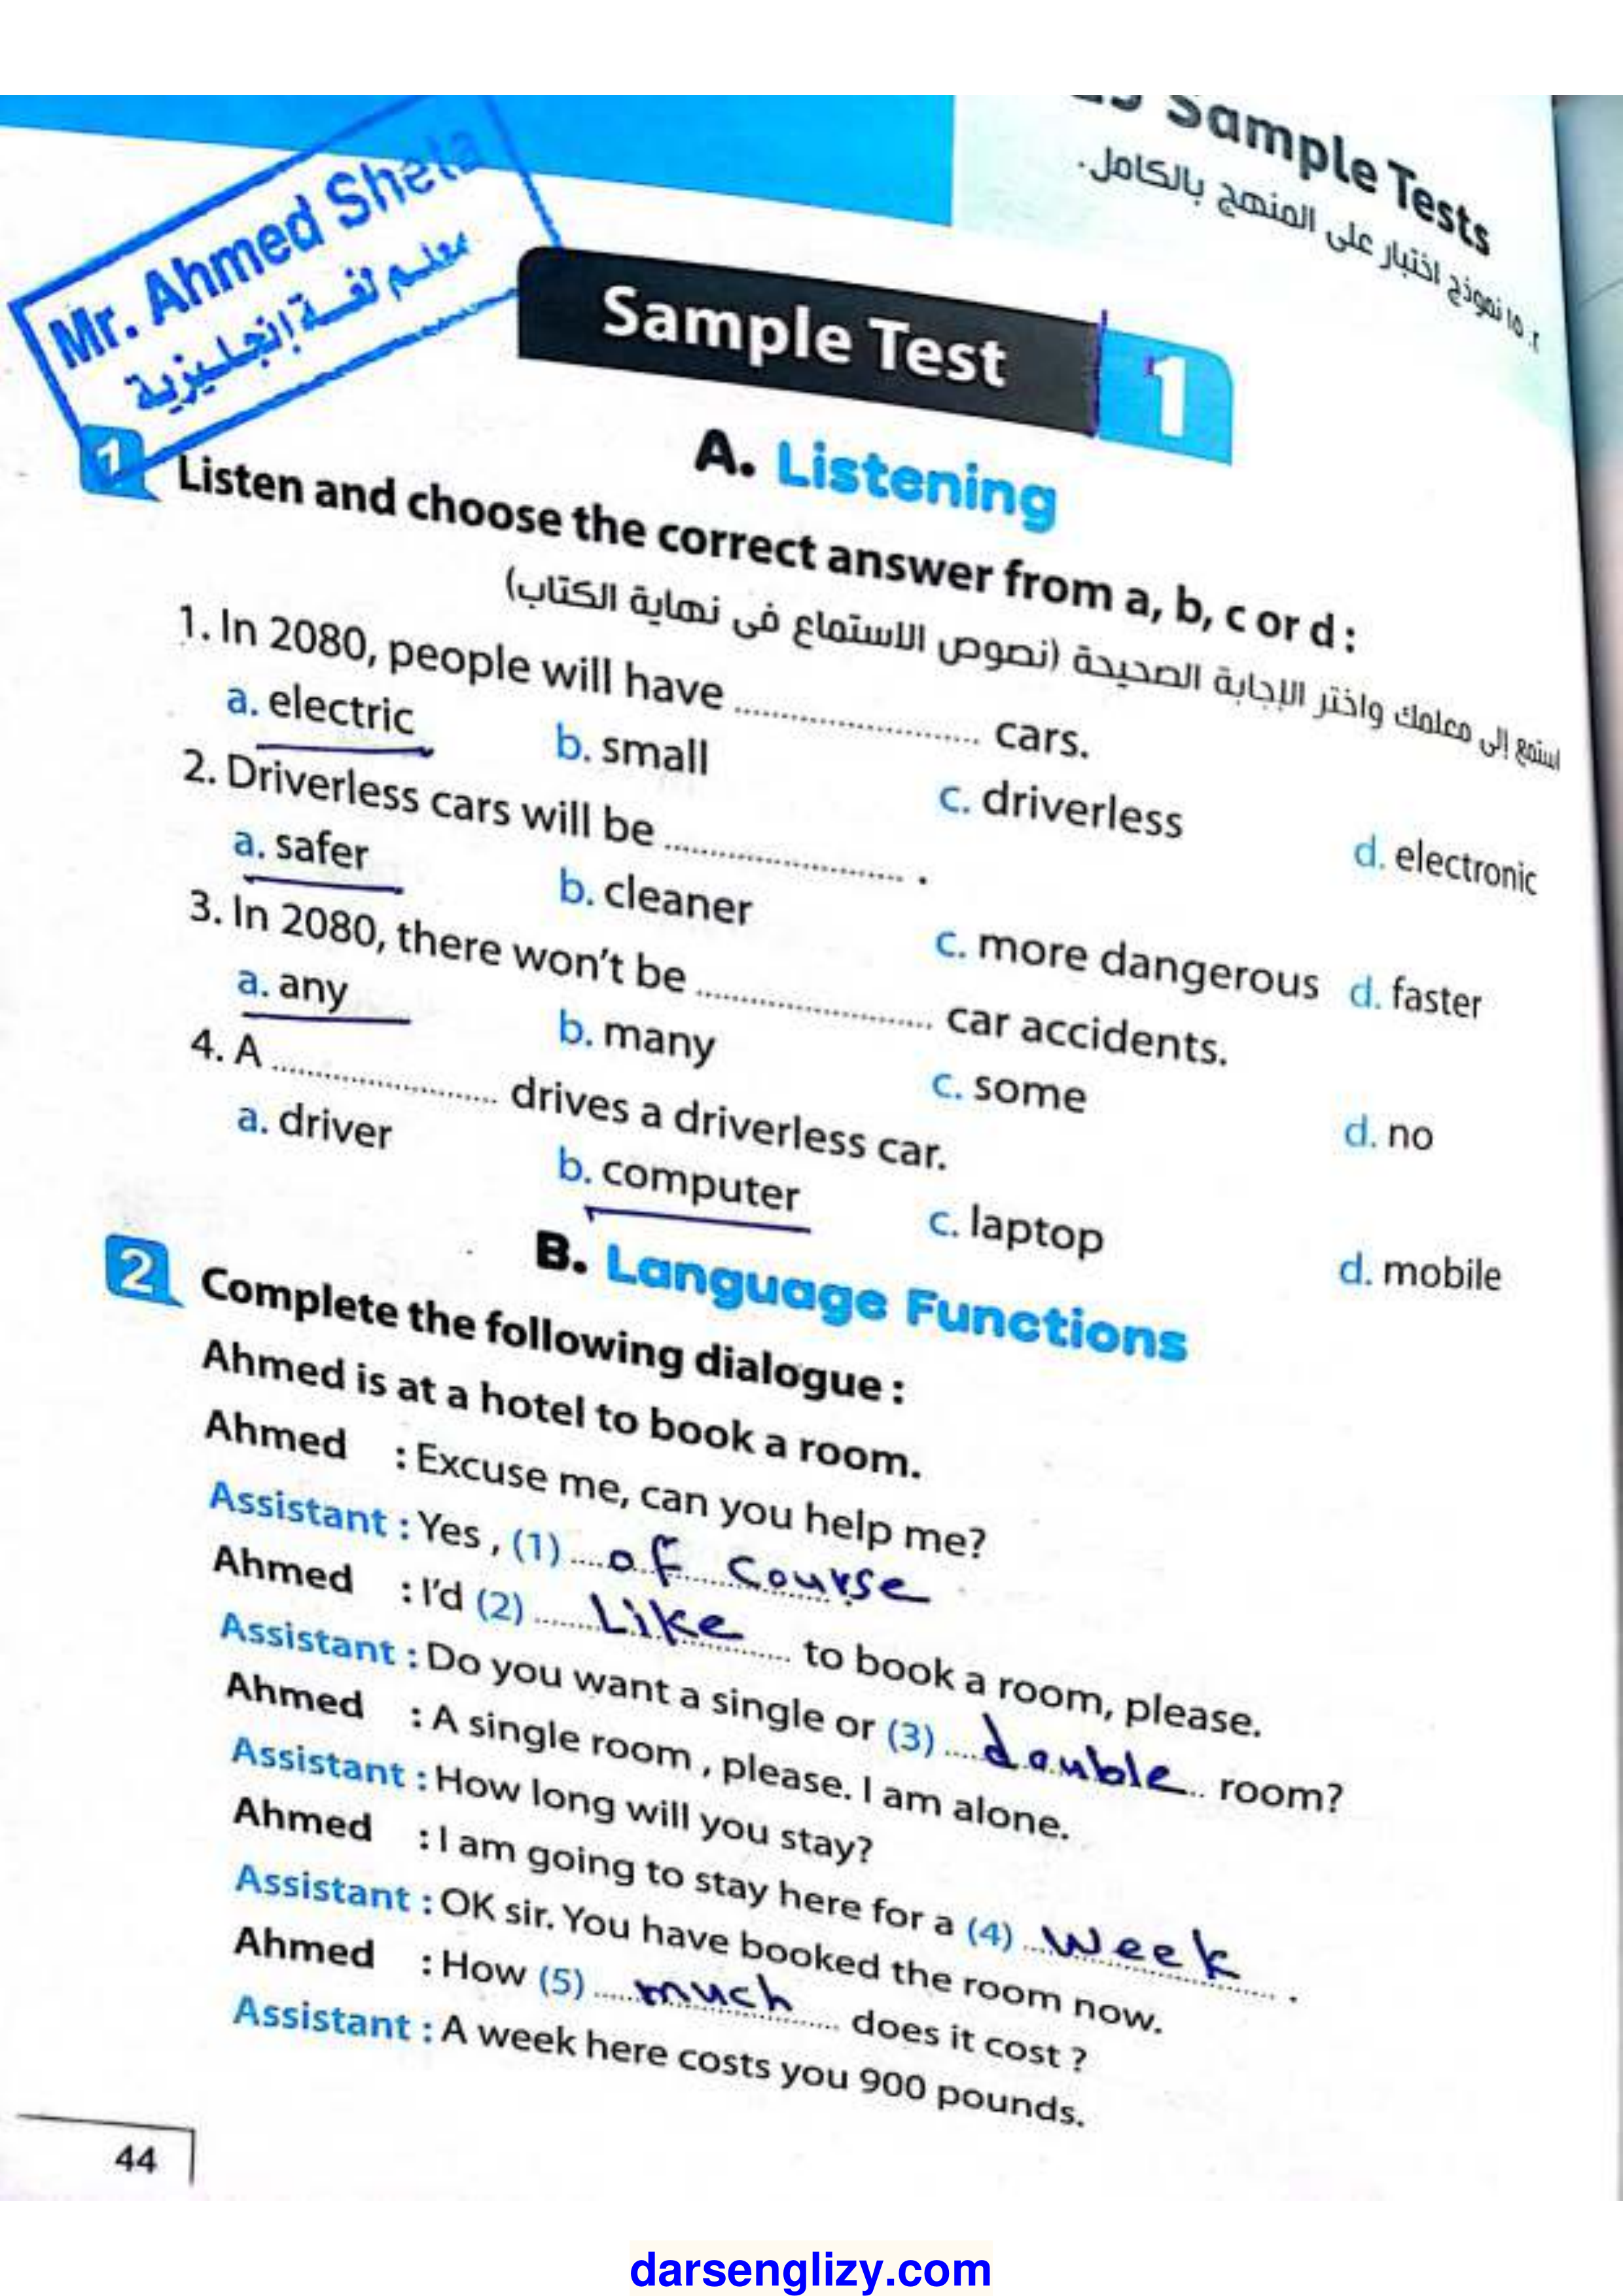 Sample Tests
٢. ١٥ نموذج اختبار على المنهج بالكامل.
Mr. Ahmed Sheta
معلم لغة إنجليزية
Sample Test 1
A. Listening
1 Listen and choose the correct answer from a, b, c or d :
استمع إلى معلمك واختر الإجابة الصحيحة (نصوص الاستماع فى نهاية الكتاب)
1. In 2080, people will have .................... cars.
a. electric b. small c. driverless d. electronic
2. Driverless cars will be .................... .
a. safer b. cleaner c. more dangerous d. faster
3. In 2080, there won't be .................... car accidents.
a. any b. many c. some d. no
4. A .................... drives a driverless car.
a. driver b. computer c. laptop d. mobile
B. Language Functions
2 Complete the following dialogue :
Ahmed is at a hotel to book a room.
Ahmed : Excuse me, can you help me?
Assistant : Yes , (1) .... of course
Ahmed : I'd (2) .... Like .... to book a room, please.
Assistant : Do you want a single or (3) .... double .. room?
Ahmed : A single room , please. I am alone.
Assistant : How long will you stay?
Ahmed : I am going to stay here for a (4) .... week .... .
Assistant : OK sir. You have booked the room now.
Ahmed : How (5) .... much .... does it cost ?
Assistant : A week here costs you 900 pounds.
44
darsenglizy.com